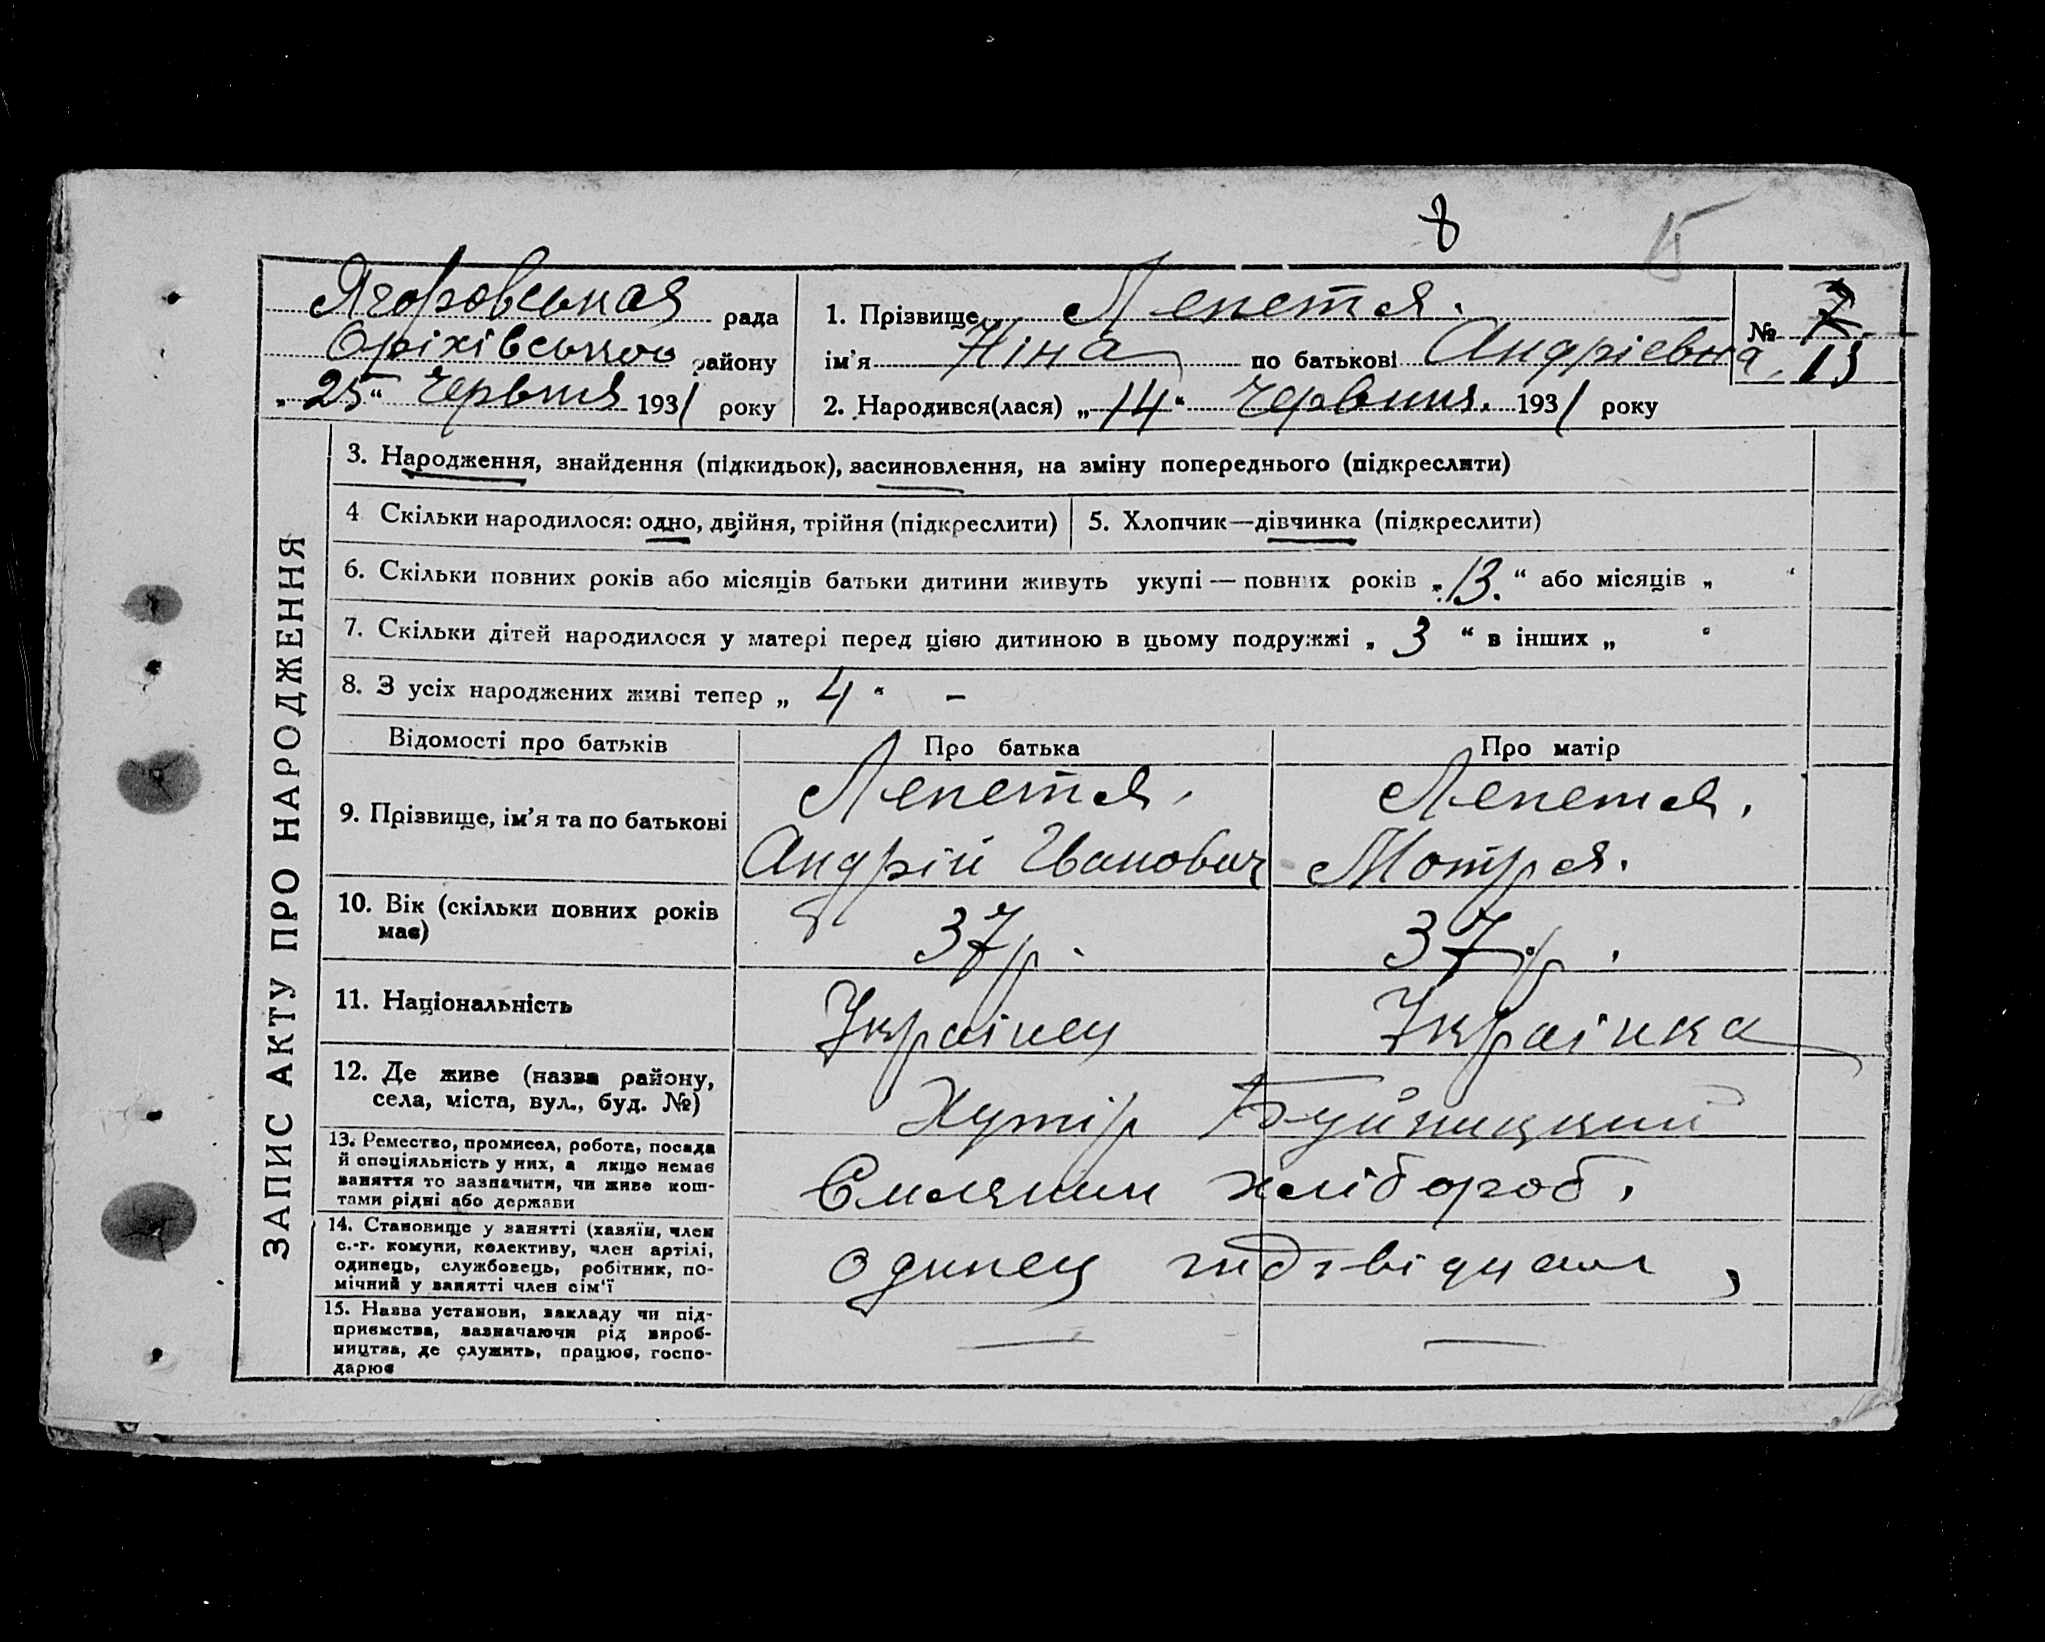 8 15
Ягоровськая рада
Оріхівського району
„25“ Червня 1931 року
1. Прізвище Лепетя.
ім’я Ніна по батькові Андріевна
2. Народився(лася) „14“ Червния. 1931 року
№ 7
13
ЗАПИС АКТУ ПРО НАРОДЖЕННЯ
3. Народження, знайдення (підкидьок), засиновлення, на зміну попереднього (підкреслити)
4 Скільки народилося: одно, двійня, трійня (підкреслити)
5. Хлопчик—дівчинка (підкреслити)
6. Скільки повних років або місяців батьки дитини живуть укупі — повних років „13.“ або місяців „ “
7. Скільки дітей народилося у матері перед цією дитиною в цьому подружжі „ 3 “ в інших „ “
8. З усіх народжених живі тепер „ 4 “ –
Відомості про батьків Про батька Про матір
9. Прізвище, ім’я та по батькові
Лепетя. Лепетя.
Андрій Іванович Мотря.
10. Вік (скільки повних років
має)
37 р. 37 р.
11. Національність
Украінец Украінка
12. Де живе (назва району,
села, міста, вул., буд. №)
Хутір Буйницкий
13. Ремество, промисел, робота, посада
й спеціяльність у них, а якщо немає
заняття то зазначити, чи живе кош-
тами рідні або держави
хлібороб.
14. Становище у занятті (хазяїн, член
с.-г. комуни, колективу, член артілі,
одинець, службовець, робітник, по-
мічний у занятті член сім’ї
одинец
15. Назва установи, закладу чи під-
приємства, зазначаючи рід вироб-
ництва, де служить, працює, госпо-
дарює
— —